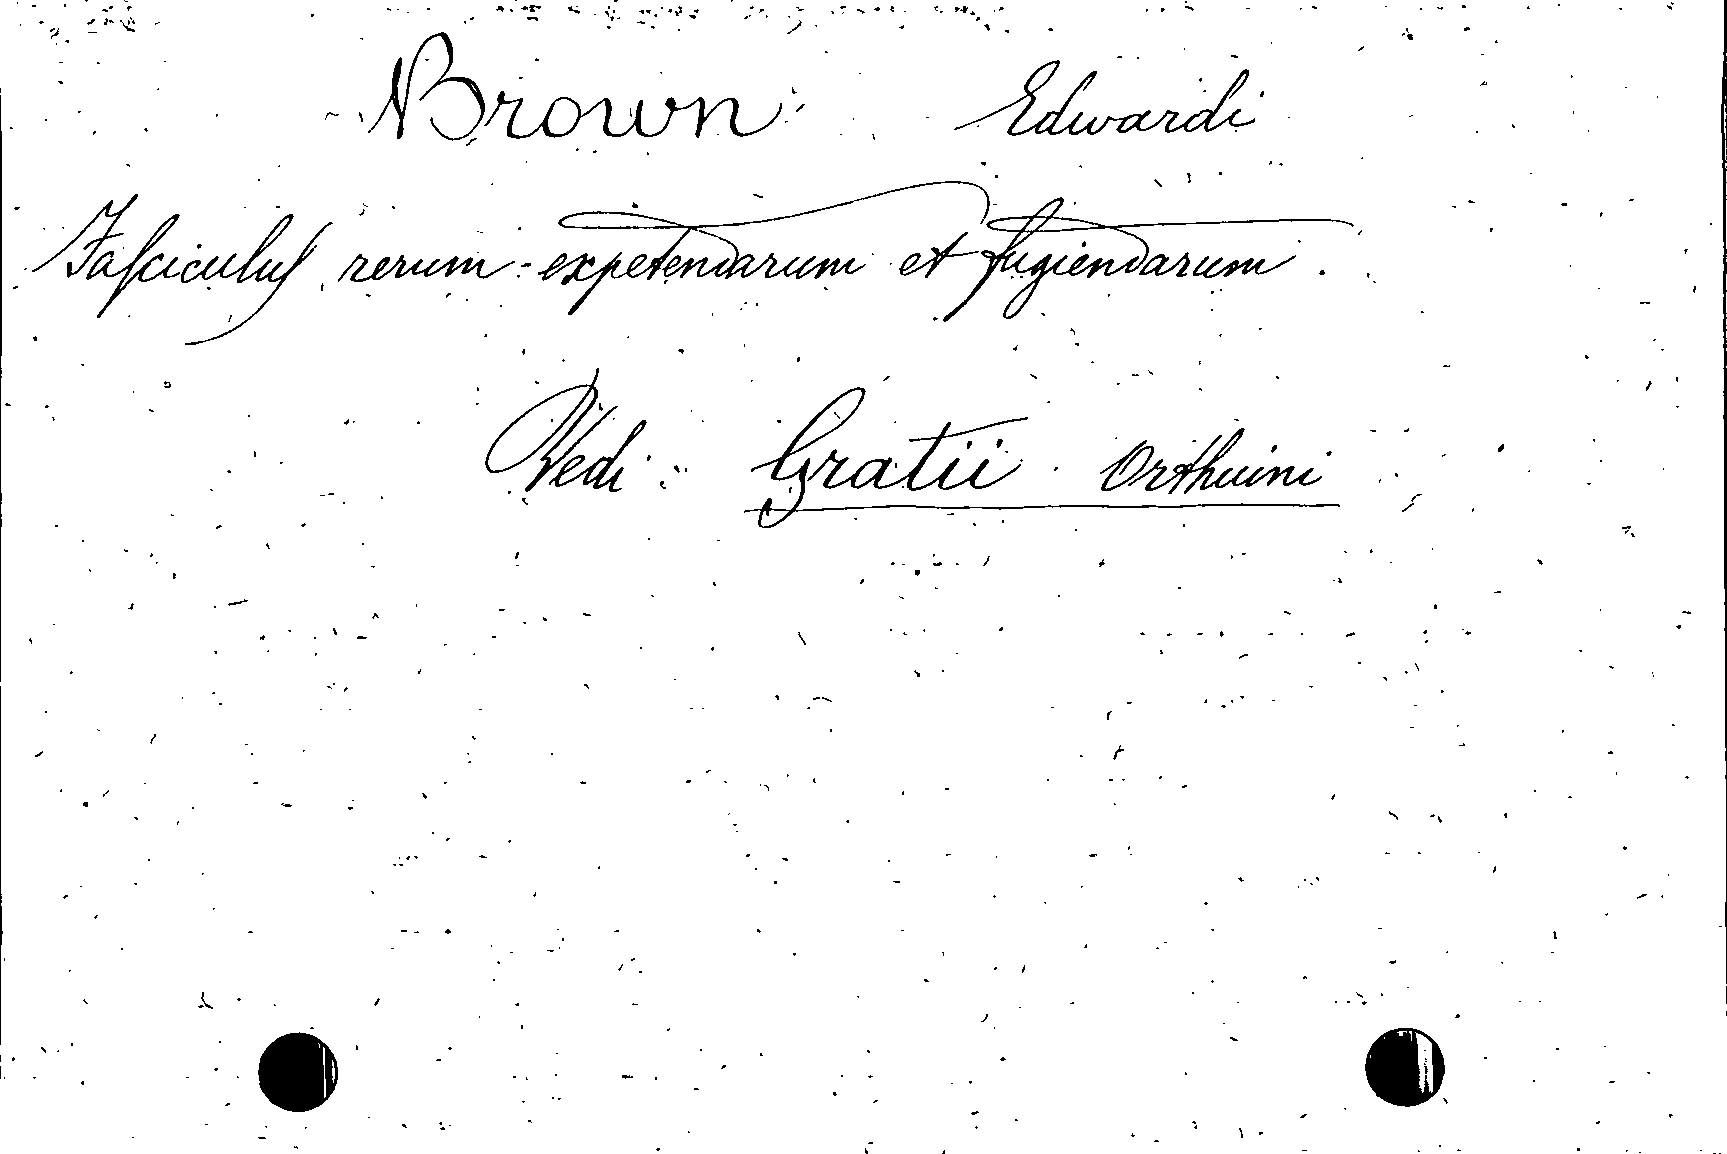 Brown Edwardi
Fasciculus rerum expetendarum et fugiendarum.
Vedi: Gratii Orthuini